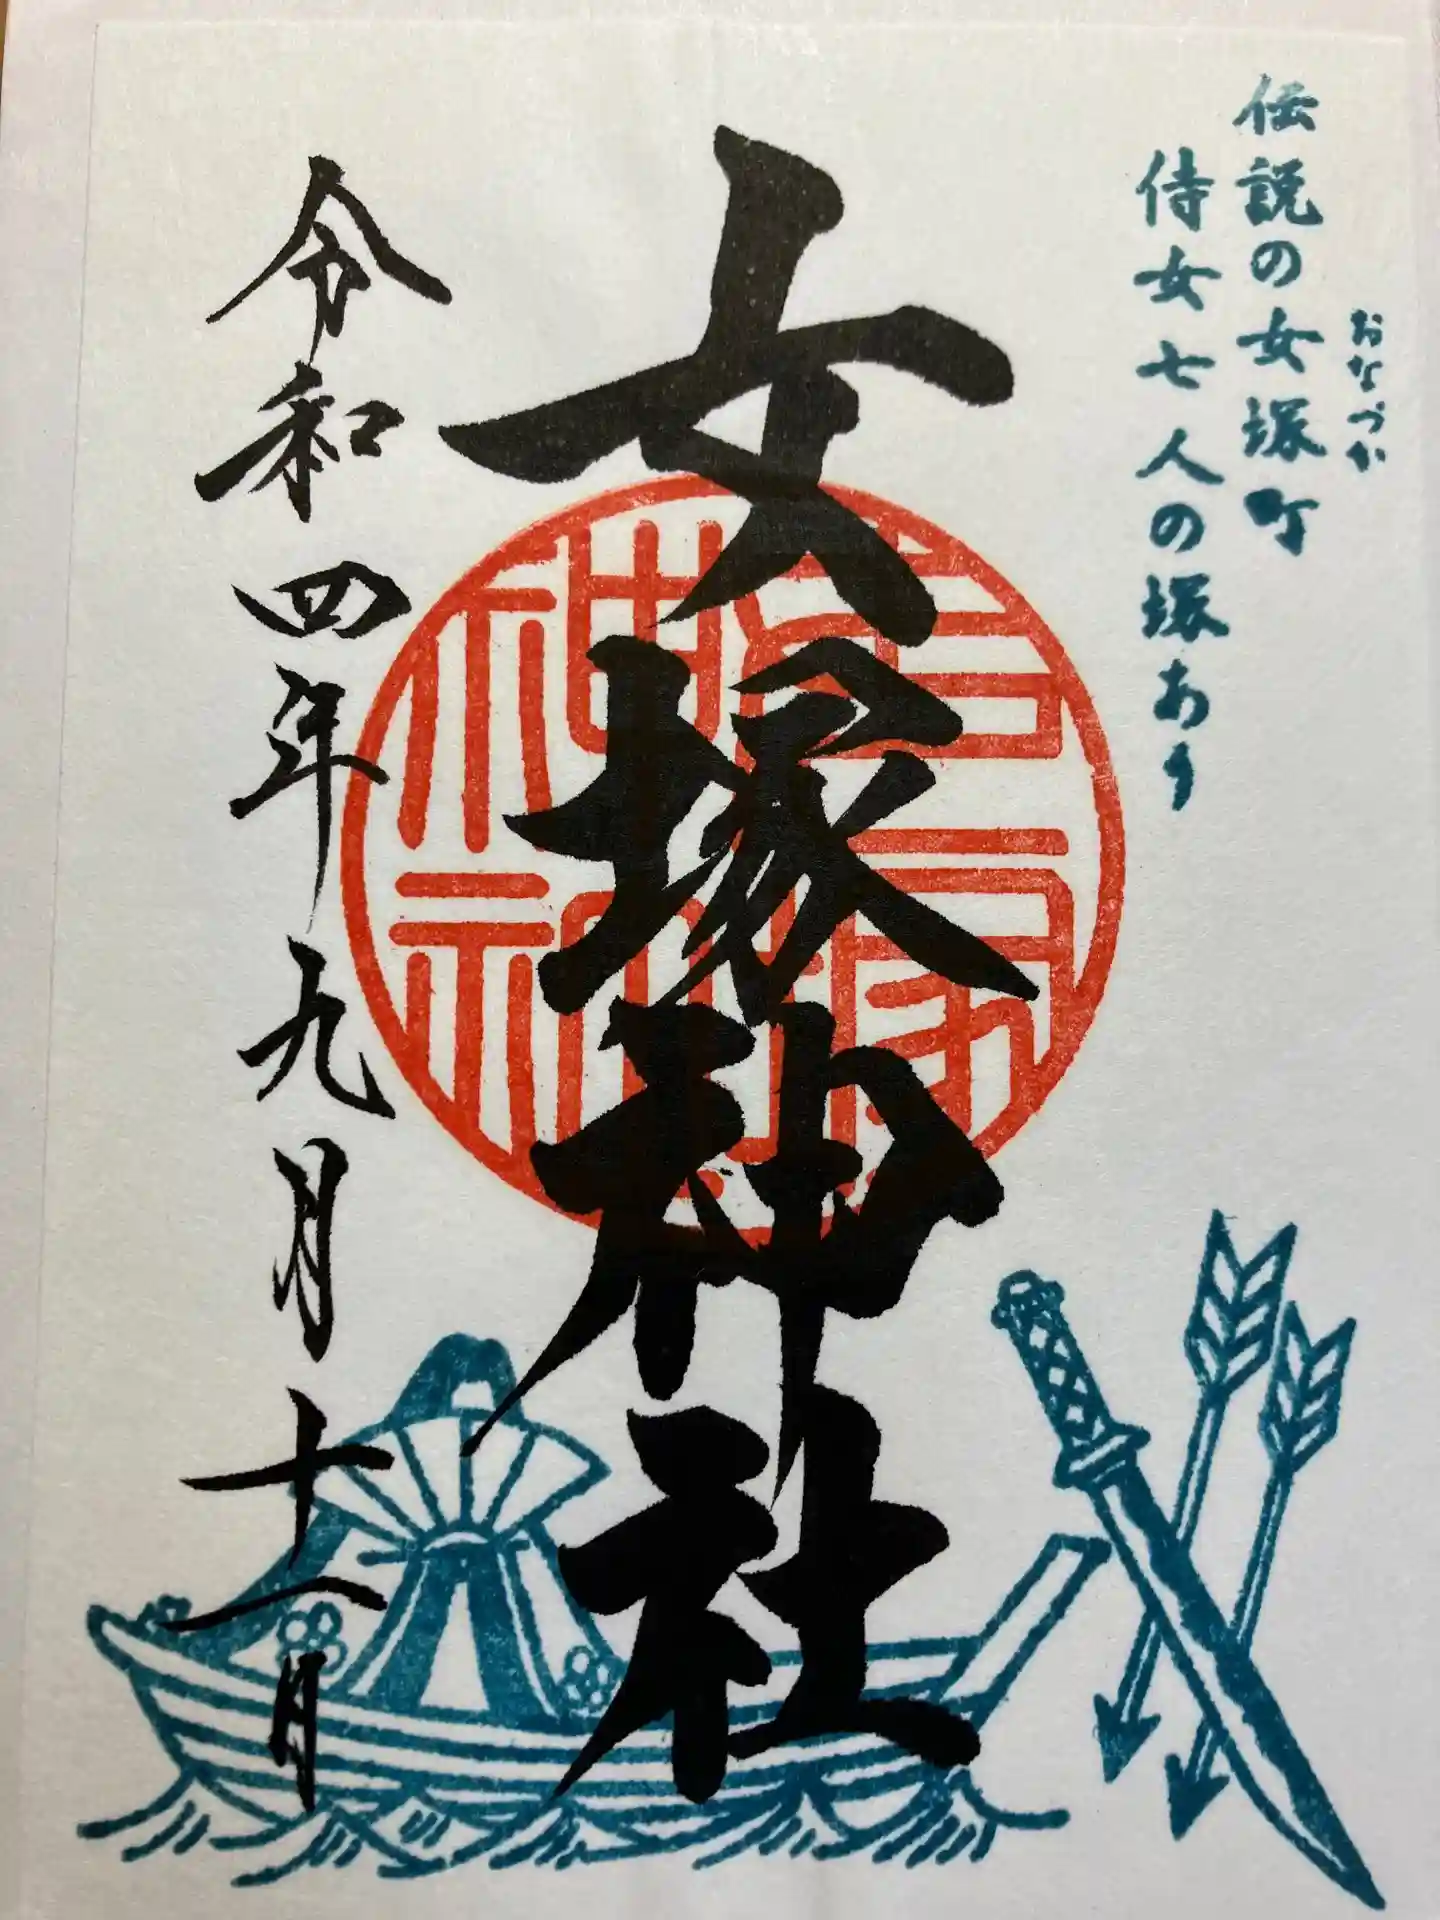 伝説の女塚町
おなづか
侍女七人の塚あり
女塚神社
令和四年九月十一月